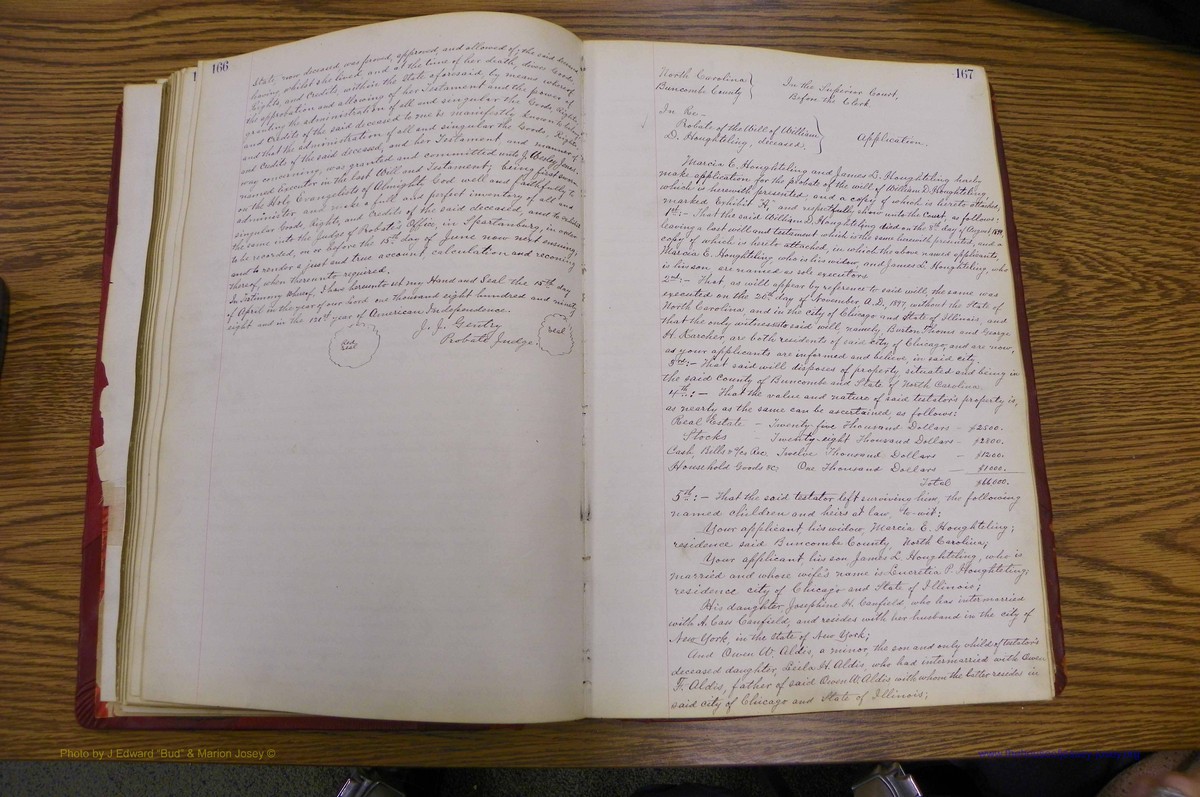 166
State, now deceased, was proved, approved, and allowed of; the said deceased
having whilst she lived and at the time of her death, divers Goods,
Rights, and Credits, within the State aforesaid, by means whereof
the approbation and allowing of her Testament and the power of
granting the administration of all and singular the Goods, Rights,
and Credits of the said deceased to me is manifestly known to belong
and that the administration of all and singular the Goods, Rights,
and Credits of the said deceased, and her Testament and manner of
way concerning, was granted and committed unto J. Wesley Jones,
named Executor in the last Will and Testament; being first sworn
on the Holy Evangelists of Almighty God well and faithfully to
administer and make a full and perfect inventory of all and
singular Goods, Rights, and Credits of the said deceased, and to exhibit
the same into the Judge of Probate's Office, in Spartanburg, in order
to be recorded, on or before the 15th day of June now next ensuing
and to render a just and true account, calculation and reconing
thereof, when thereunto required.
In Testimony Whereof, I have hereunto set my Hand and Seal the 15th day
of April in the year of our Lord one thousand eight hundred and ninety
eight and in the 122nd year of American Independence.
J. J. Gentry
Probate Judge.
Red
seal
seal
167
North Carolina
Buncombe County
In the Superior Court,
Before the Clerk.
In Re-
Probate of the Will of William
D. Houghteling, deceased.
Application.
Marcia E. Houghteling and James L. Houghteling hereby
make application for the probate of the will of William D. Houghteling,
which is herewith presented, and a copy of which is hereto attached,
marked Exhibit A, and respectfully show unto the Court, as follows:
1st:- That the said William D. Houghteling died on the 8th day of August, 1898
leaving a last will and testament which is the same herewith presented, and a
copy of which is hereto attached, in which the above named applicants,
Marcia E. Houghteling, who is his widow, and James L. Houghteling, who
is his son, are named as sole executors.
2nd:- That, as will appear by reference to said will, the same was
executed on the 20th day of November A.D. 1897, without the State of
North Carolina, and in the city of Chicago and State of Illinois, and
that the only witnesses to said will, namely, Burton Thoms and George
H. Karcher, are both residents of said city of Chicago, and are now,
as your applicants are informed and believe, in said city.
3rd:- That said will disposes of property situated and being in
the said County of Buncombe and State of North Carolina.
4th:- That the value and nature of said testator's property is,
as nearly as the same can be ascertained, as follows:
Real Estate - Twenty five Thousand Dollars - $2500.
Stocks - Twenty-eight Thousand Dollars - $2800.
Cash, Bills Rec. Twelve Thousand Dollars - $1200.
Household Goods &c, One Thousand Dollars - $1000.
Total $66000.
5th:- That the said testator left surviving him, the following
named children and heirs at law, to-wit:
Your applicant, his widow, Marcia E. Houghteling;
residence said Buncombe County, North Carolina;
Your applicant, his son James L. Houghteling, who is
married and whose wife's name is Lucretia P. Houghteling;
residence city of Chicago and State of Illinois;
His daughter, Josephine H. Canfield, who has intermarried
with A. Cass Canfield, and resides with her husband in the city of
New York, in the state of New York;
And Owen W. Aldis, a minor, the son and only child of testator's
deceased daughter, Leila H. Aldis, who had intermarried with Owen
F. Aldis, father of said Owen W. Aldis, with whom the latter resides in
said city of Chicago and State of Illinois;
Photo by J Edward "Bud" & Marion Josey ©